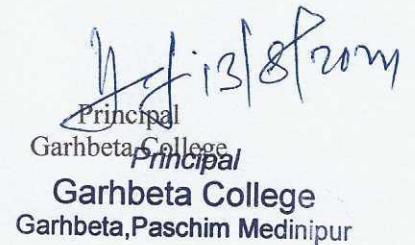 13/8/2021
Principal
Garhbeta College
Principal
Garhbeta College
Garhbeta,Paschim Medinipur